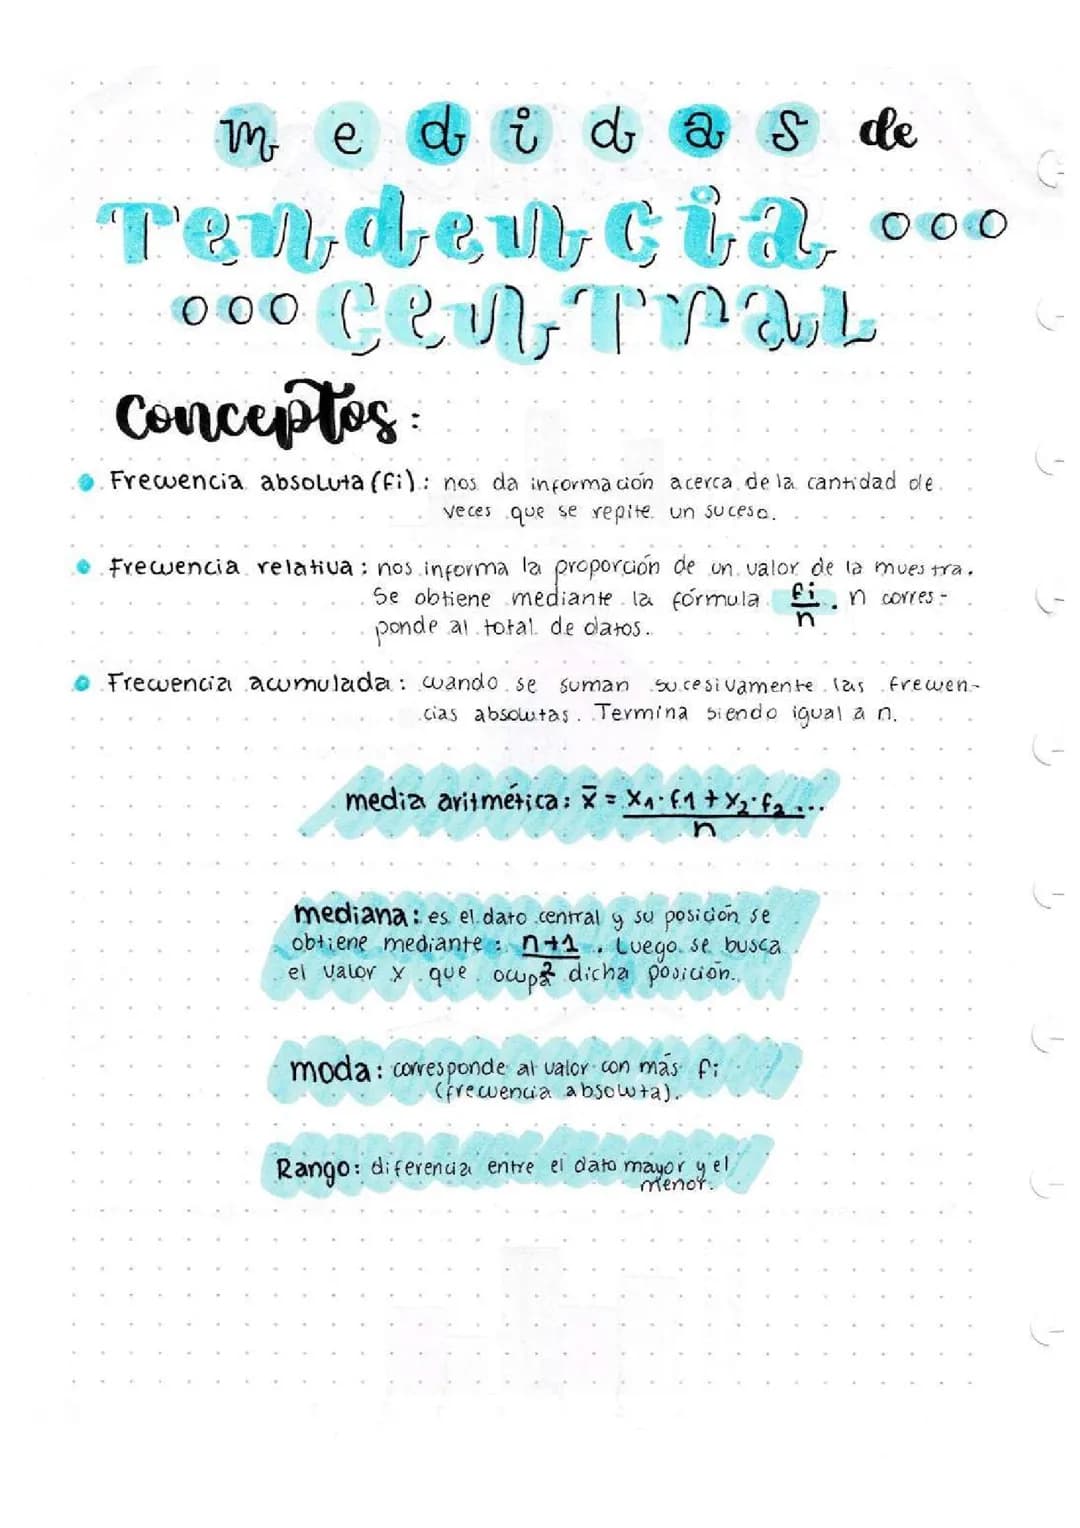 medidas de
Tendencia
central
Conceptos:
Frecuencia absoluta (fi): nos da información acerca de la cantidad de
veces que se repite un suceso.
Frecuencia relativa: nos informa la proporción de un valor de la muestra.
Se obtiene mediante la fórmula fi/n. n corres-
ponde al total de datos.
Frecuencia acumulada: cuando se suman sucesivamente las frecuen-
cias absolutas. Termina siendo igual a n.
media aritmética: x̄ = x₁·f1 + x₂·f₂ ...
n
mediana: es el dato central y su posición se
obtiene mediante: n+1/2. Luego se busca
el valor x que ocupa dicha posición.
moda: corresponde al valor con más fi
(frecuencia absoluta).
Rango: diferencia entre el dato mayor y el
menor.